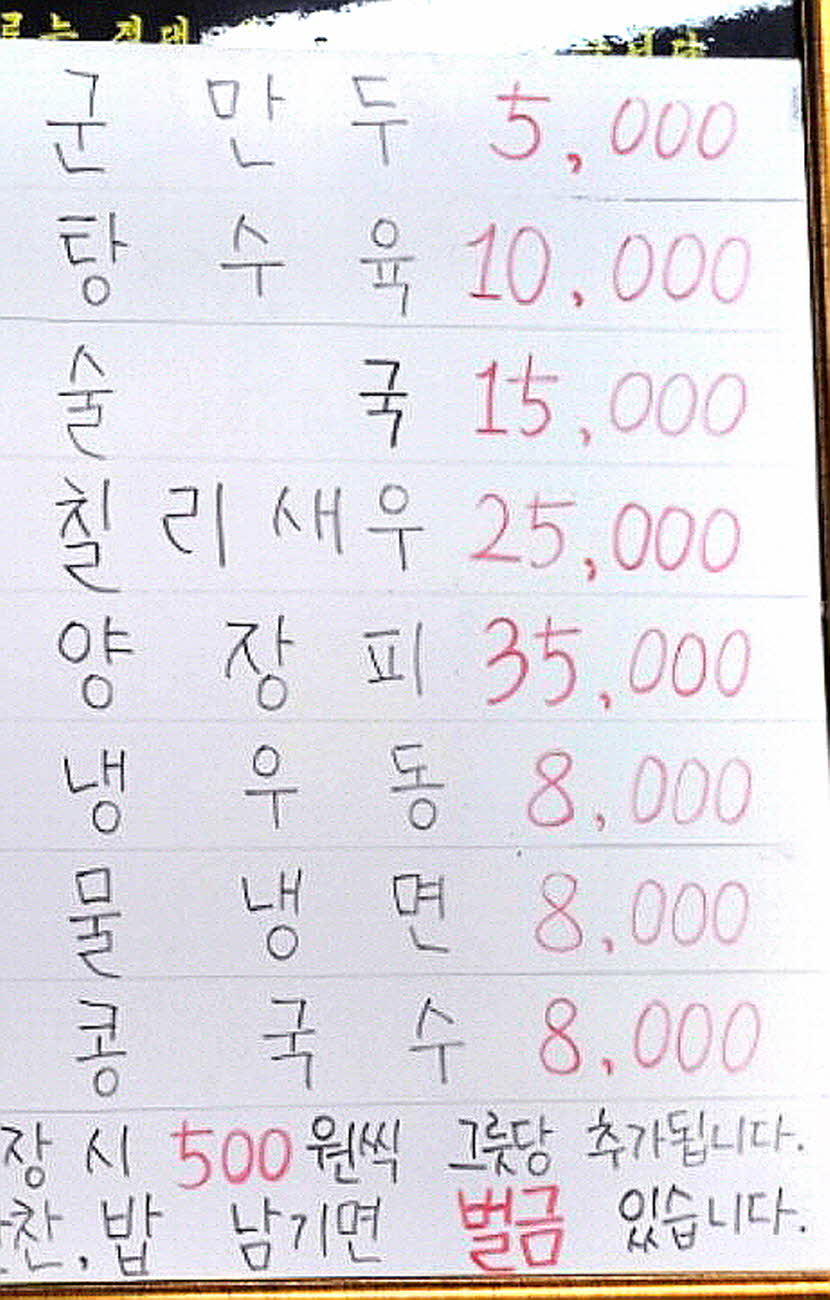 군 만 두 5,000
탕 수 육 10,000
술 국 15,000
칠 리 새 우 25,000
양 장 피 35,000
냉 우 동 8,000
물 냉 면 8,000
콩 국 수 8,000
장 시 500원씩 그릇당 추가됩니다.
찬, 밥 남기면 벌금 있습니다.